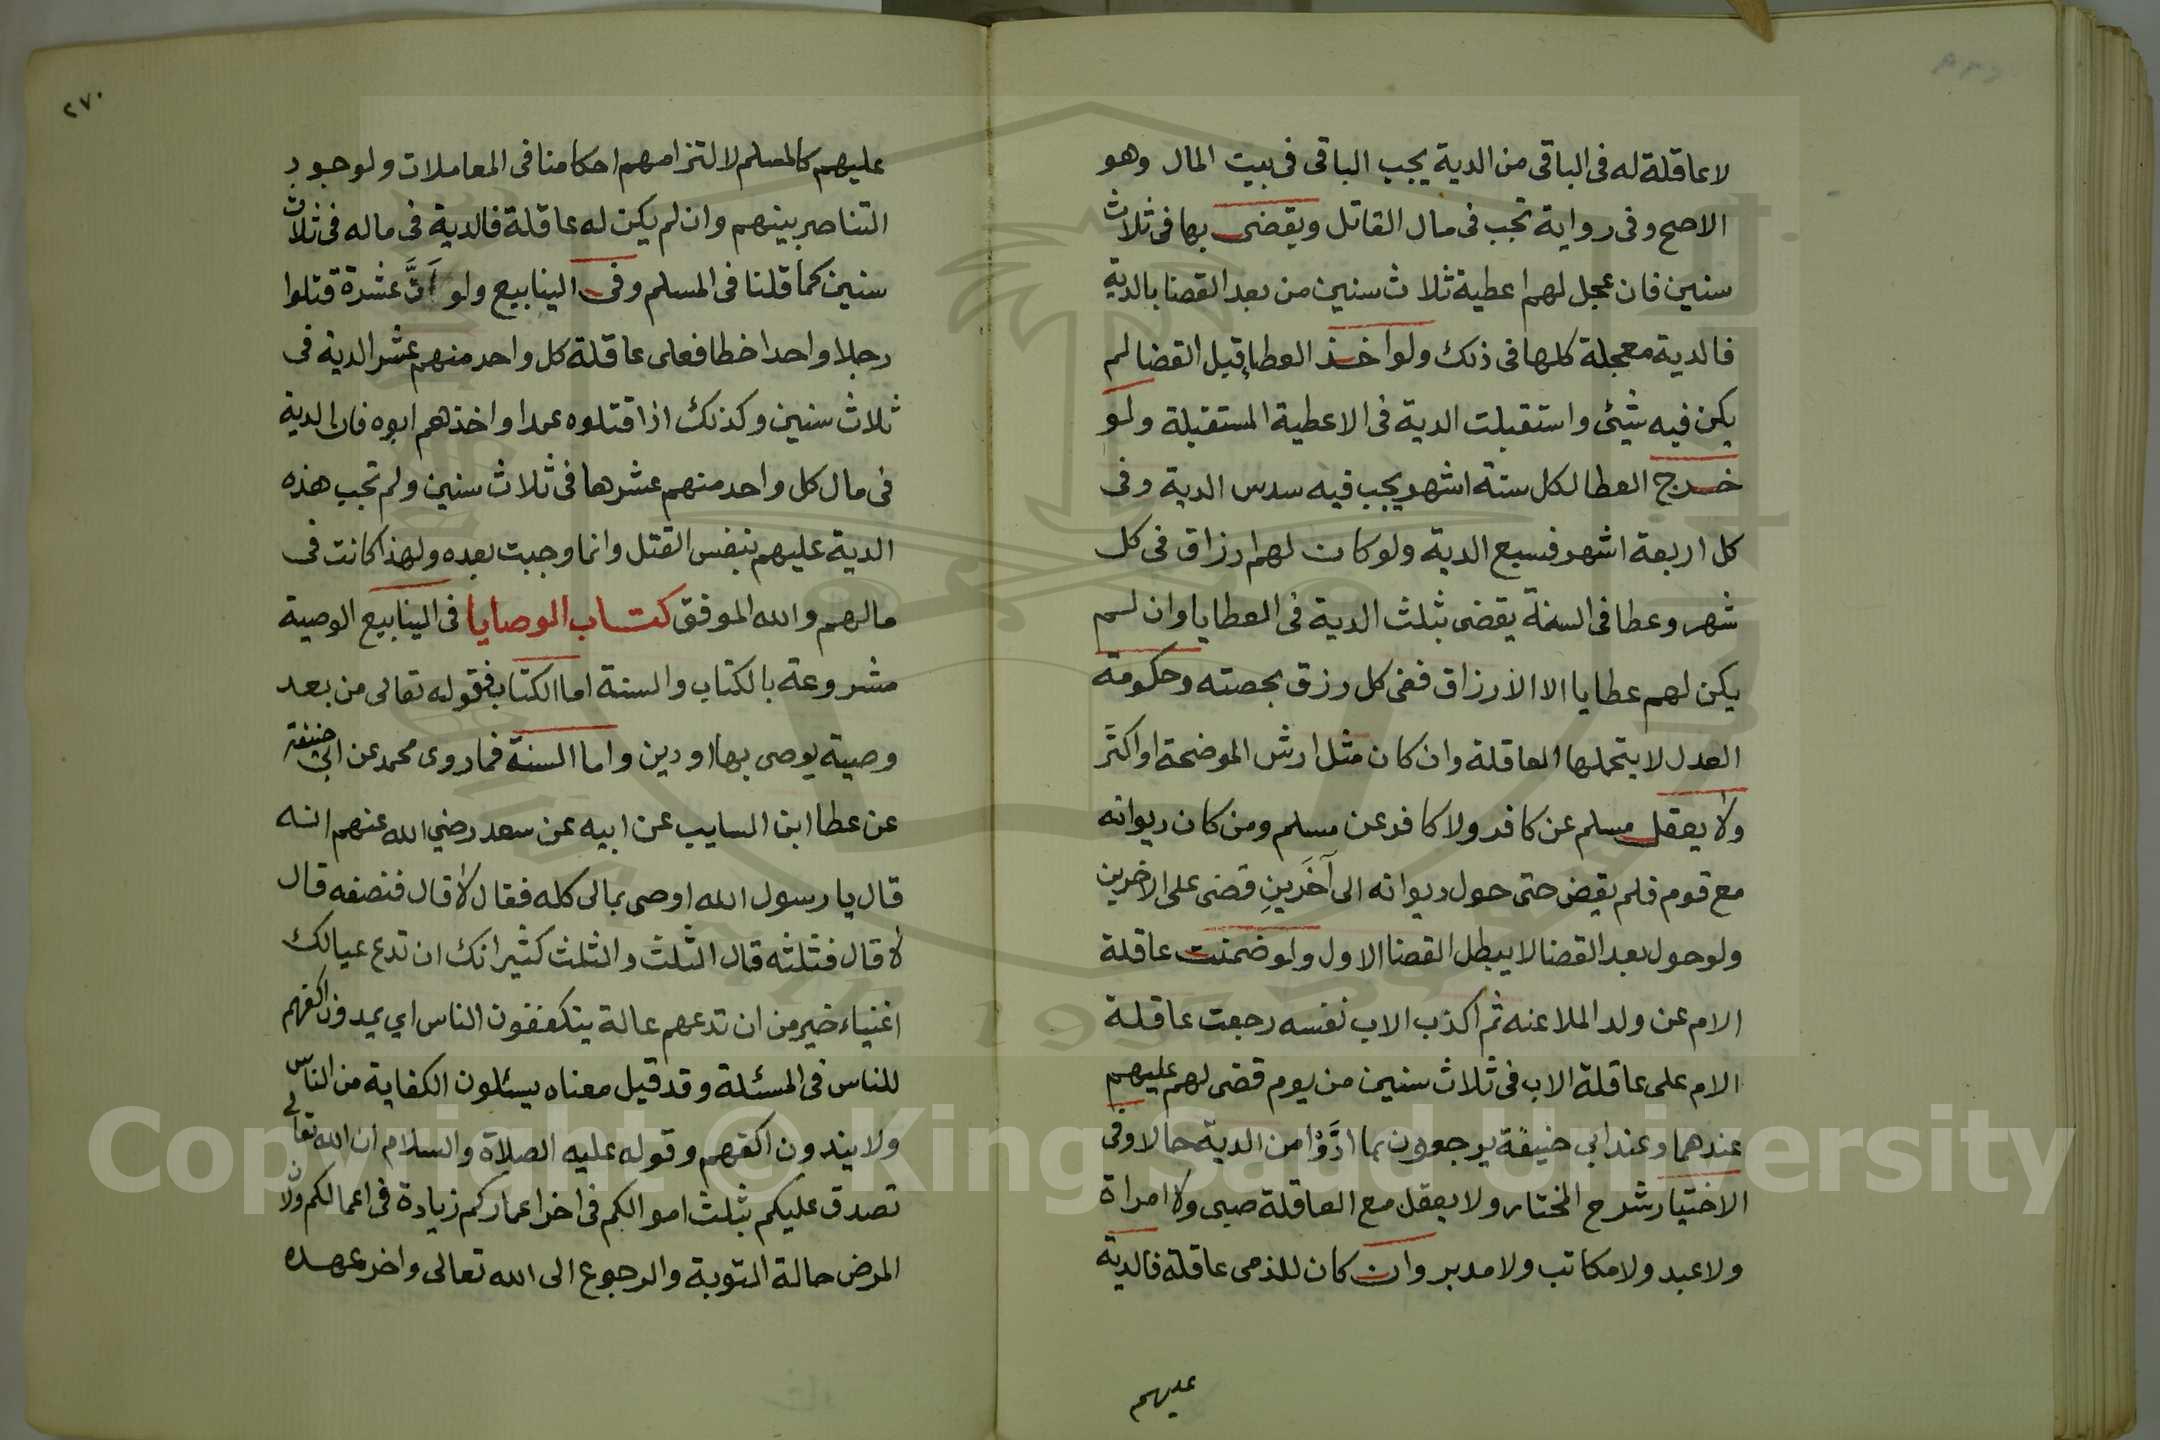 لا عاقلة له فى الباقى من الدية يجب الباقى فى بيت المال وهو
الاصح وفى رواية تجب فى مال القاتل ويقضى بها فى ثلاث
سنين فان عجل لهم اعطية ثلاث سنين من بعد القضا بالدية
فالدية معجلة كلها فى ذلك ولو اخذ العطا قبل القضا لم
يكن فيه شيئ واستقبلت الدية فى الاعطية المستقبلة ولو
خرج العطا لكل ستة اشهر يجب فيه سدس الدية وفى
كل اربعة اشهر فسبع الدية ولو كان لهم ارزاق فى كل
شهر وعطا فى السنة يقضى بثلث الدية فى العطايا وان لم
يكن لهم عطايا الا الارزاق ففى كل رزق بحصته وحكومة
العدل لا يتحملها العاقلة وان كان مثل ارش الموضحة او اكثر
ولا يعقل مسلم عن كافر ولا كافر عن مسلم ومن كان ديوانه
مع قوم فلم يقض حتى حول ديوانه الى آخَرينِ قضى على الاخرين
ولو حول بعد القضا لا يبطل القضا الاول ولو ضمنت عاقلة
الام عن ولد الملاعنه ثم اكذب الاب نفسه رجعت عاقلة
الام على عاقلة الاب فى ثلاث سنين من يوم قضى لهم عليهم
عندهما وعند ابي حنيفة يرجعون بما ادَّوْا من الدية حالا وفى
الاختيار شرح المختار ولا يعقل مع العاقلة صبى ولا امراة
ولا عبد ولا مكاتب ولا مدبر وان كان للذمى عاقلة فالدية
عليهم
٢٧٠
عليهم كالمسلم لالتزامهم احكامنا فى المعاملات ولوجود
التناصر بينهم وان لم يكن له عاقلة فالدية فى ماله فى ثلاث
سنين كما قلنا فى المسلم وفى الينابيع ولو اَنَّ عشرة قتلوا
رجلا واحدا خطا فعلى عاقلة كل واحد منهم عشر الدية فى
ثلاث سنين وكذلك اذا قتلوه عمدا واخذهم ابوه فان الدية
فى مال كل واحد منهم عشرها فى ثلاث سنين ولم تجب هذه
الدية عليهم بنفس القتل وانما وجبت بعده ولهذا كانت فى
مالهم والله الموفق كتاب الوصايا فى الينابيع الوصية
مشروعة بالكتاب والسنة اما الكتاب فقوله تعالى من بعد
وصية يوصى بها او دين واما السنة فما روى محمد عن ابي حنيفة
عن عطا ابن السايب عن ابيه عن سعد رضي الله عنهم انه
قال يا رسول الله اوصى بمالى كله فقال لا قال فنصفه قال
لا قال فثلثه قال الثلث والثلث كثير انك ان تدع عيالك
اغنياء خير من ان تدعهم عالة يتكففون الناس اي يمدون اكفهم
للناس فى المسئلة وقد قيل معناه يسئلون الكفاية من الناس
ولا يندون اكفهم وقوله عليه الصلاة والسلام ان الله تعالى
تصدق عليكم بثلث اموالكم فى اخر اعماركم زيادة فى اعمالكم ولان
المرض حالة التوبة والرجوع الى الله تعالى واخر عهده
Copyright © King Saud University